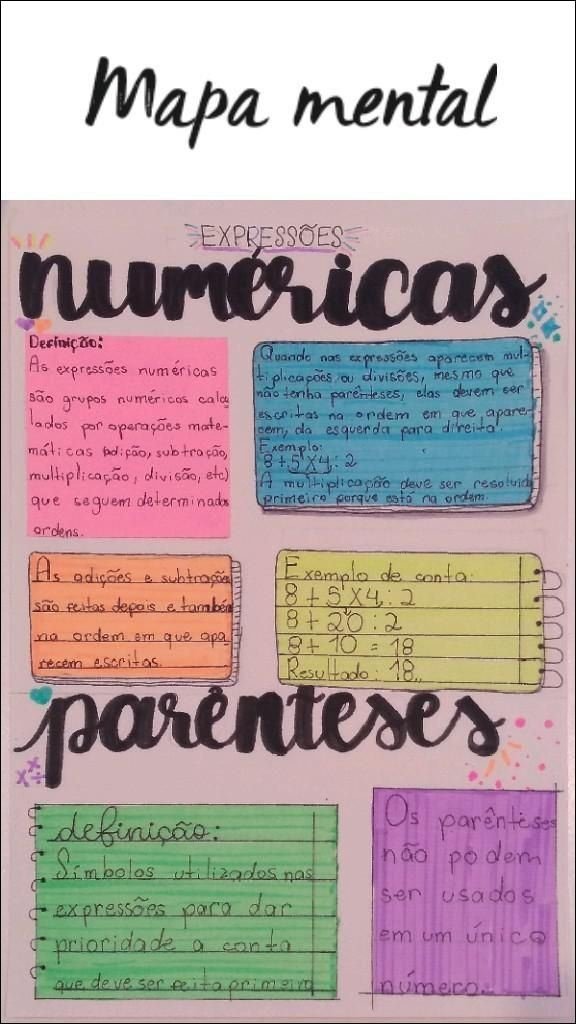 Mapa mental
EXPRESSÕES
numéricas
Definição:
As expressões numéricas
são grupos numéricos calcu
lados por operações mate-
máticas (adição, subtração,
multiplicação, divisão, etc)
que seguem determinadas
ordens.
Quando nas expressões aparecem mul-
tiplicações ou divisões, mesmo que
não tenha parênteses, elas devem ser
escritas na ordem em que apare-
cem, da esquerda para direita.
Exemplo:
8+5X4:2
A multiplicação deve ser resolvida
primeiro porque está na ordem.
As adições e subtrações
são feitas depois e também
na ordem em que apa
recem escritas.
Exemplo de conta:
8+5X4:2
8+20:2
8+10=18
Resultado: 18
parênteses
definição:
Símbolos utilizados nas
expressões para dar
prioridade a conta
que deve ser feita primeiro
Os parênteses
não podem
ser usados
em um único
número.